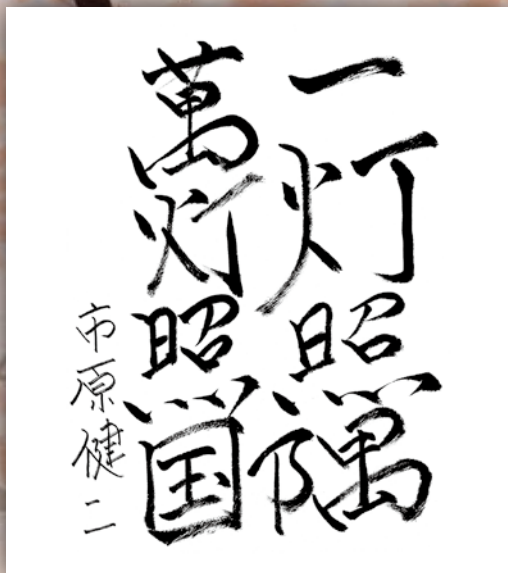 一灯照隅
萬灯照国
市原健二